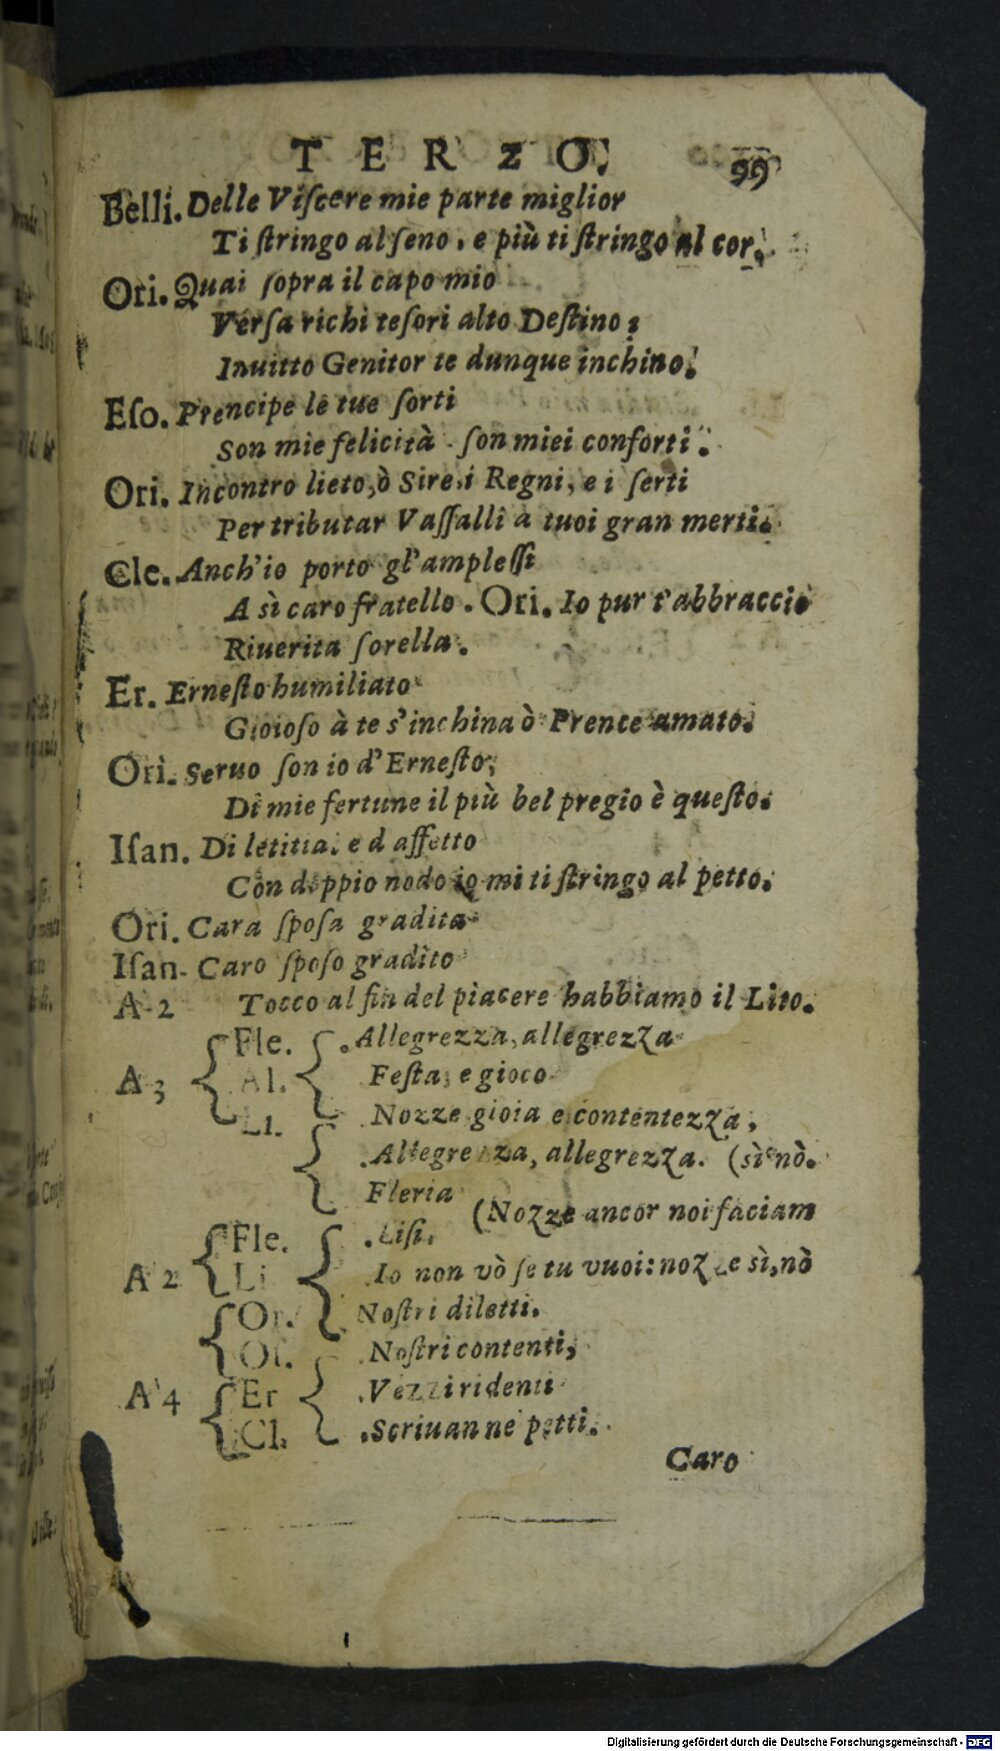 TERZO. 99
Belli. Delle Viſcere mie parte miglior
Ti ſtringo al ſeno, e più ti ſtringo al cor.
Ori. Quai ſopra il capo mio
Verſa richi teſori alto Deſtino;
Inuitto Genitor te dunque inchino.
Eſo. Prencipe le tue ſorti
Son mie felicità ſon miei conforti.
Ori. Incontro lieto, ò Sire, i Regni, e i ſerti
Per tributar Vaſſalli a tuoi gran merti.
Cle. Anch'io porto gl'ampleſſi
A sì caro fratello. Ori. Io pur t'abbraccio
Riuerita ſorella.
Er. Erneſto humiliato
Gioioſo à te s'inchina ò Prence amato.
Ori. Seruo ſon io d'Erneſto,
Di mie fertune il più bel pregio è queſto.
Iſan. Di letitia, e d affetto
Con doppio nodo io mi ti ſtringo al petto.
Ori. Cara ſpoſa gradita
Iſan. Caro ſpoſo gradito
A 2 Tocco al fin del piacere habbiamo il Lito.
Fle. Allegrezza, allegrezza
A 3 Al. Feſta, e gioco
Li. Nozze gioia e contentezza,
Allegrezza, allegrezza. (sì nò.
Fleria (Nozze ancor noi faciam
Fle. Liſi.
A 2 Li Io non vò ſe tu vuoi: nozze sì, nò
Or. Noſtri diletti.
Oſ. Noſtri contenti,
A 4 Er Vezzi ridenti
Cl. Scriuan ne petti.
Caro
Digitalisierung gefördert durch die Deutsche Forschungsgemeinschaft - DFG